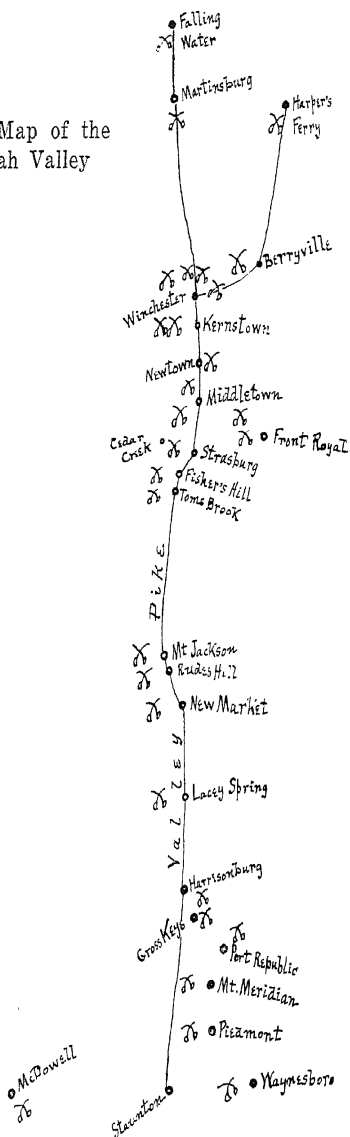 Falling
Water
Martinsburg
Harper's
Ferry
Map of the
ah Valley
Berryville
Winchester
Kernstown
Newtown
Middletown
Cedar
Creek
Front Royal
Strasburg
Fisher's Hill
Toms Brook
PIKE
Mt Jackson
Rudes Hill
New Market
VallEy
Lacey Spring
Harrisonburg
Cross Keys
Port Republic
Mt. Meridian
Piedmont
McDowell
Staunton
Waynesboro